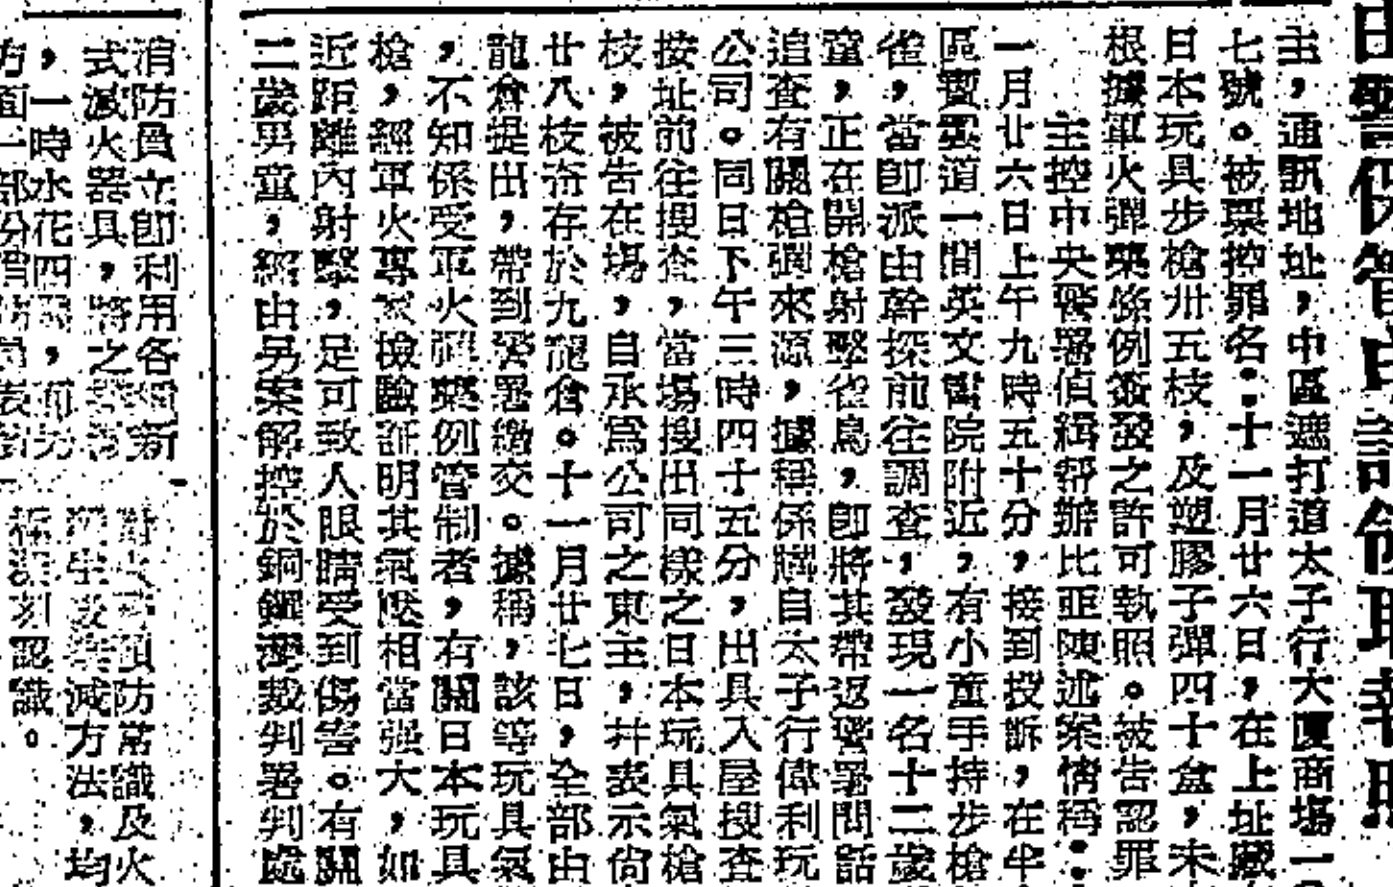 主，通訊地址，中區遮打道太子行大廈商塲一
七號。被票控罪名：十一月廿六日，在上址藏
日本玩具步槍卅五枝，及塑膠子彈四十盒，未
根據軍火彈藥條例簽發之許可執照。被告認罪
主控中央警署偵緝帮辦比亞陳述案情稱：
一月廿六日上午九時五十分，接到投訴，在半
區寶雲道一間英文書院附近，有小童手持步槍
雀，當卽派由幹探前往調查，發現一名十二歲
童，正在開槍射擊雀鳥，卽將其帶返警署問話
追查有關槍彈來源，據稱係購自太子行偉利玩
公司。同日下午三時四十五分，出具入屋搜查
按址前往搜查，當塲搜出同樣之日本玩具氣槍
枝，被告在塲，自承爲公司之東主，幷表示尙
廿八枝寄存於九龍倉。十一月廿七日，全部由
龍倉提出，帶到警署繳交。據稱，該等玩具氣
，不知係受軍火彈藥例管制者，有關日本玩具
槍，經軍火專家檢驗証明其氣壓相當强大，如
近距離內射擊，足可致人眼睛受到傷害。有關
二歲男童，經由另案解控於銅鑼灣裁判署判處
消防員立卽利用各種新
式滅火器具，將之
，一時水花四
方面一部份
防常識及火
滅方法，均
深刻認識。